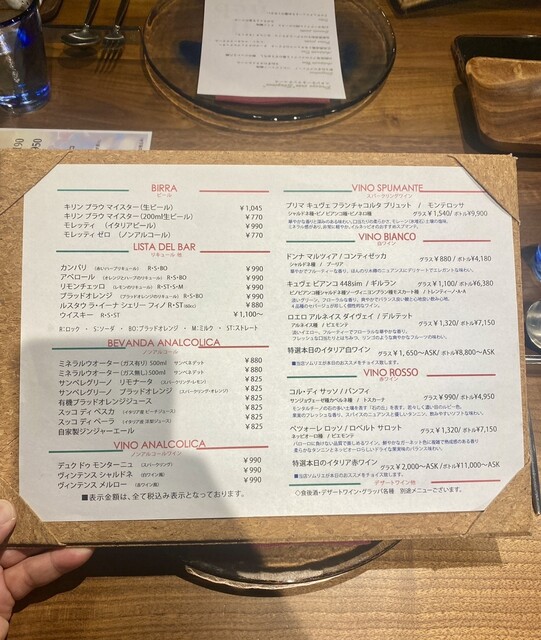 BIRRA
ビール
キリン ブラウ マイスター(生ビール) ¥1,045
キリン ブラウ マイスター(200ml生ビール) ¥770
モレッティ (イタリアビール) ¥990
モレッティ ゼロ (ノンアルコール) ¥770
LISTA DEL BAR
リキュール 他
カンパリ (赤いハーブリキュール) R・S・BO ¥990
アペロール (オレンジとハーブのリキュール) R・S・BO ¥990
リモンチェッロ (レモンのリキュール) R・S・T・S・M ¥990
ブラッドオレンジ (ブラッドオレンジのリキュール) R・S・BO ¥990
ルスタウ ラ・イーナ シェリー フィノ R・ST ¥990
ウイスキー R・S・ST ¥1,100〜
R:ロック ・ S:ソーダ ・ BO:ブラッドオレンジ ・ M:ミルク ・ ST:ストレート
BEVANDA ANALCOLICA
ノンアルコール
ミネラルウオーター(ガス有り) 500ml サンベネデット ¥880
ミネラルウオーター(ガス無し) 500ml サンベネデット ¥880
サンペレグリーノ リモナータ (スパークリング・レモン) ¥825
サンペレグリーノ ブラッドオレンジ (スパークリング・オレンジ) ¥825
有機ブラッドオレンジジュース ¥825
スッコ ディ ペスカ (イタリア産 ピーチジュース) ¥825
スッコ ディ ペーラ (イタリア産 洋梨ジュース) ¥825
自家製ジンジャーエール ¥825
VINO ANALCOLICA
ノンアルコールワイン
デュク ドゥ モンターニュ (スパークリング) ¥990
ヴィンテンス シャルドネ (白ワイン風) ¥990
ヴィンテンス メルロー (赤ワイン風) ¥990
■表示金額は、全て税込み表示となっております。
VINO SPUMANTE
スパークリングワイン
プリマ キュヴェ フランチャコルタ ブリュット / モンテロッサ
シャルドネ種・ピノ ビアンコ種・ピノネロ種 グラス¥1,540/ ボトル¥9,900
VINO BIANCO
白ワイン
ドンナ マルツィア / コンティゼッカ
シャルドネ種 / プーリア グラス¥880 / ボトル¥4,180
華やかでフルーティーな香り、ほんのり木樽のニュアンスはデリケートでエレガントな味わい。
キュヴェ ビアンコ 448slm / ギルラン グラス¥1,100/ ボトル¥6,380
ロエロ アルネイス ダイヴェイ / デルテット
アルネイス種 / ピエモンテ グラス¥1,320/ ボトル¥7,150
特選本日のイタリア白ワイン
グラス¥1,650〜ASK/ ボトル¥8,800〜ASK
■当店ソムリエが本日のおススメをチョイス致します。
VINO ROSSO
赤ワイン
コル・ディ・サッソ / バンフィ
サンジョヴェーゼ種カベルネ種 / トスカーナ グラス¥990/ ボトル¥4,950
ペッツォーレ ロッソ / ロベルト サロット
ネッビオーロ種 / ピエモンテ グラス¥1,320/ ボトル¥7,150
特選本日のイタリア赤ワイン
グラス¥2,000〜ASK /ボトル¥11,000〜ASK
■当店ソムリエが本日のおススメをチョイス致します。
デザートワイン他
◇食後酒・デザートワイン・グラッパ各種 別途メニューございます。